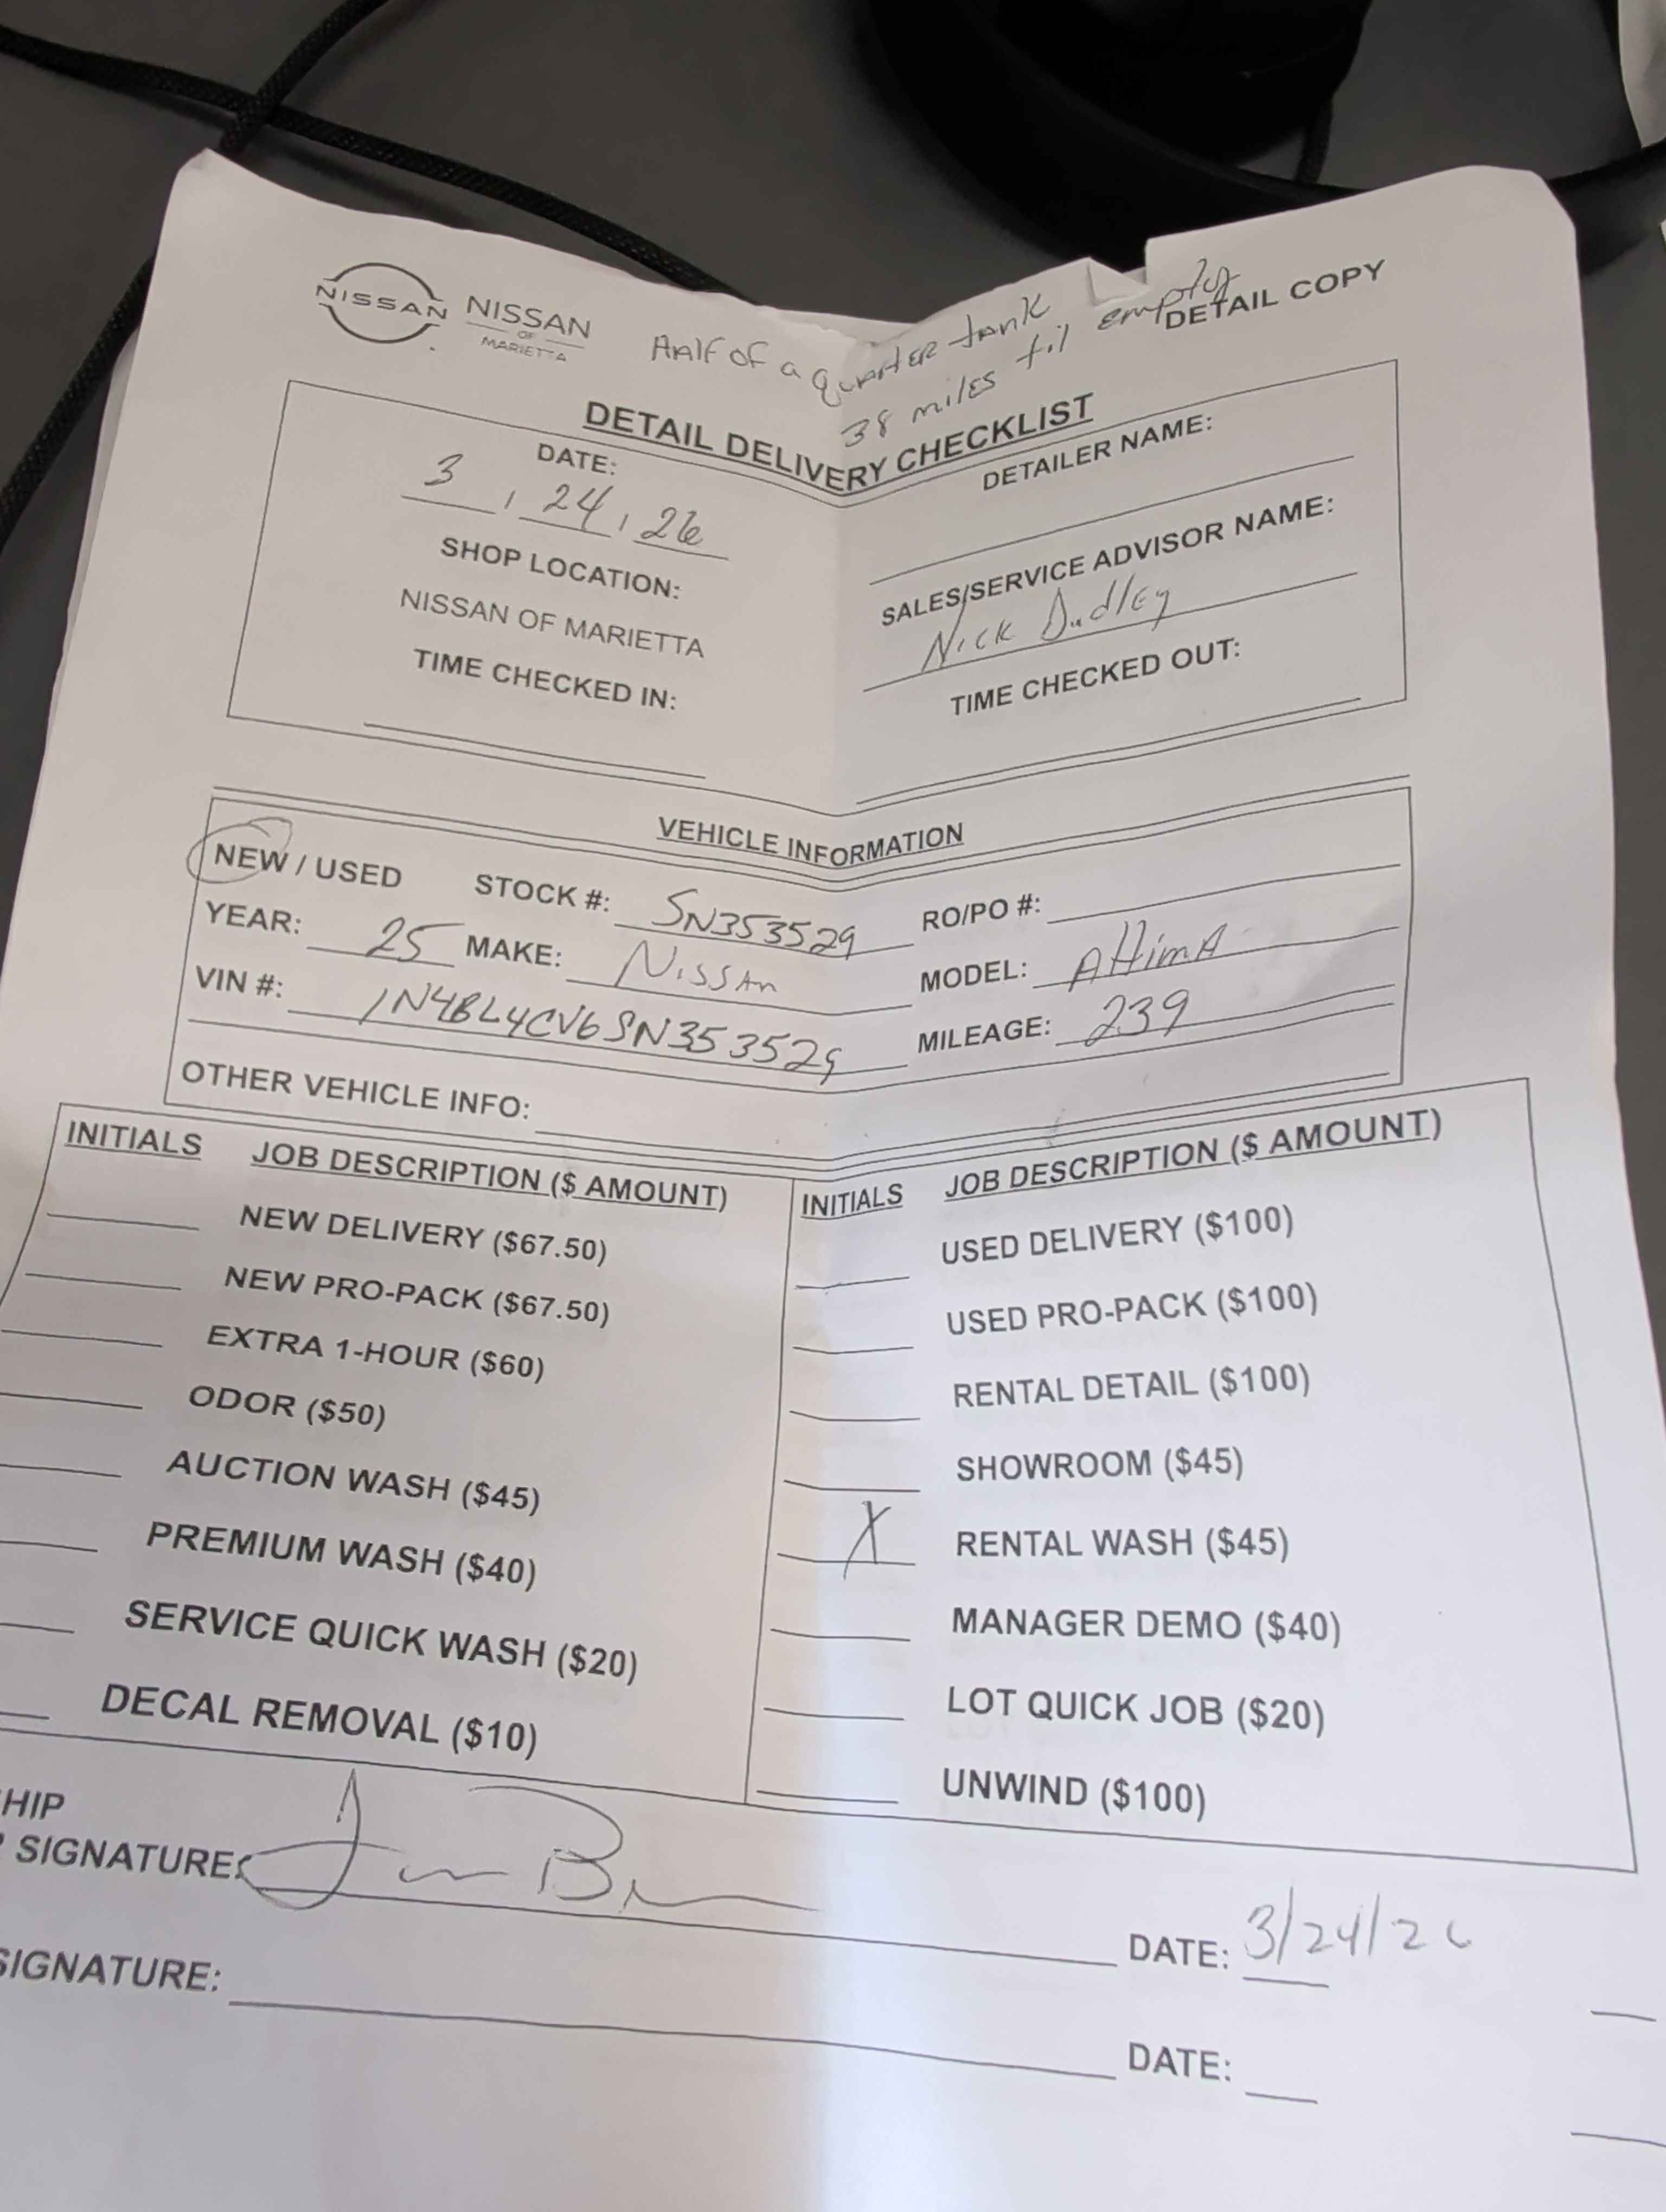 NISSAN
NISSAN
OF
MARIETTA
HAlF OF a quARtER tANK
38 milES til empty
DETAIL COPY
DETAIL DELIVERY CHECKLIST
DATE:
3 / 24 / 26
SHOP LOCATION:
NISSAN OF MARIETTA
TIME CHECKED IN:
DETAILER NAME:
SALES/SERVICE ADVISOR NAME:
NICK DudlEy
TIME CHECKED OUT:
VEHICLE INFORMATION
NEW / USED STOCK #: SN353529 RO/PO #:
YEAR: 25 MAKE: NiSSAn MODEL: AltimA
VIN #: 1N4BL4CV6SN353529 MILEAGE: 239
OTHER VEHICLE INFO:
INITIALS JOB DESCRIPTION ($ AMOUNT)
NEW DELIVERY ($67.50)
NEW PRO-PACK ($67.50)
EXTRA 1-HOUR ($60)
ODOR ($50)
AUCTION WASH ($45)
PREMIUM WASH ($40)
SERVICE QUICK WASH ($20)
DECAL REMOVAL ($10)
INITIALS JOB DESCRIPTION ($ AMOUNT)
USED DELIVERY ($100)
USED PRO-PACK ($100)
RENTAL DETAIL ($100)
SHOWROOM ($45)
X RENTAL WASH ($45)
MANAGER DEMO ($40)
LOT QUICK JOB ($20)
UNWIND ($100)
HIP
SIGNATURE:
DATE: 3/24/26
SIGNATURE:
DATE: